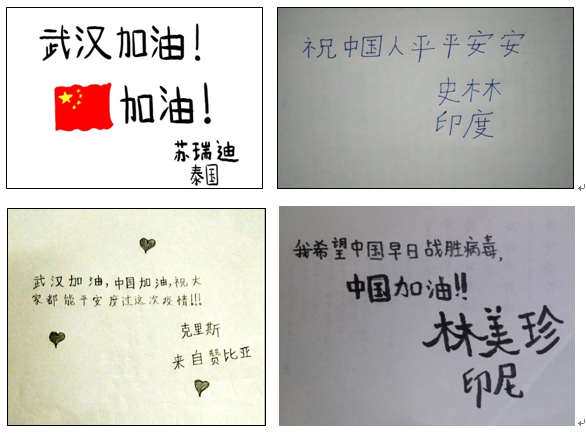 武汉加油!
加油!
苏瑞迪
泰国
祝中国人平平安安
史林林
印度
武汉加油,中国加油,祝大
家都能平安度过这次疫情!!!
克里斯
来自赞比亚
我希望中国早日战胜病毒,
中国加油!!
林美珍
印尼